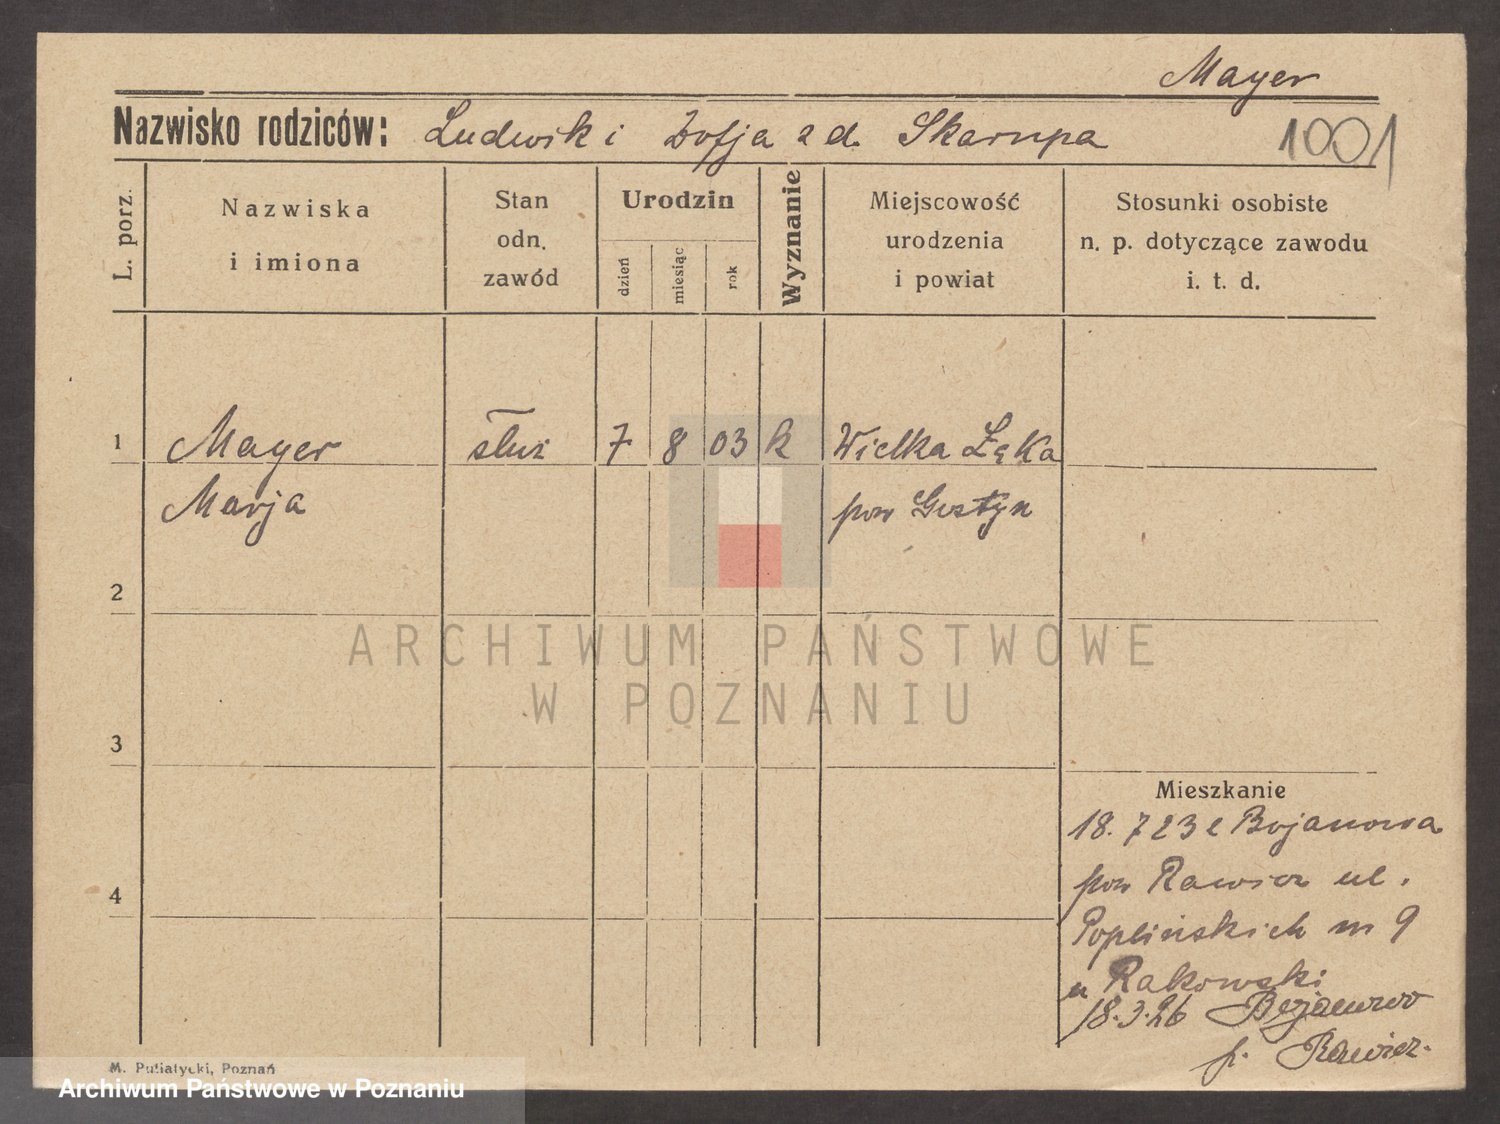 Mayer
Nazwisko rodziców: Ludwik i Zofja z d. Skarupa
1001
L. porz.
Nazwiska
i imiona
Stan
odn.
zawód
Urodzin
dzień
miesiąc
rok
Wyznanie
Miejscowość
urodzenia
i powiat
Stosunki osobiste
n. p. dotyczące zawodu
i. t. d.
1 Mayer służ 7 8 03 k Wielka Łęka
Marja pow Gostyn
2
3
4
Mieszkanie
18. 7 23 z Bojanowa
pow Rawicz ul.
Poplińskich m 9
u Rakowski
18.3.26 Bojanowo
p. Rawicz.
M. Putiatycki, Poznań
ARCHIWUM PAŃSTWOWE
W POZNANIU
Archiwum Państwowe w Poznaniu